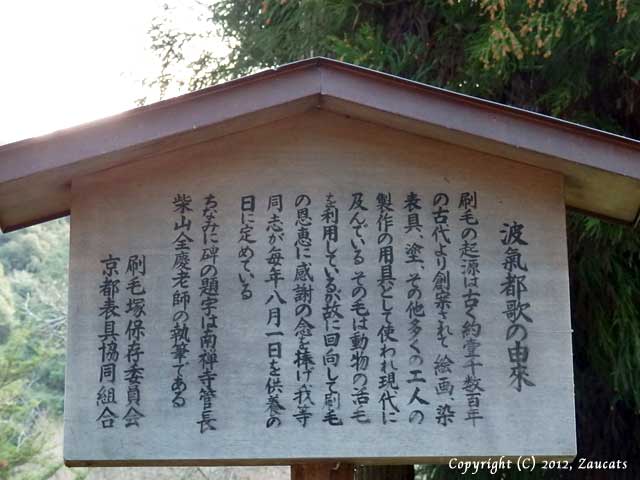 波氣都歌の由來
刷毛の起源は古く約壹千数百年
の古代より創案されて絵画、染
表具、塗、その他多くの工人の
製作の用具として使われ現代に
及んでいる その毛は動物の活毛
を利用しているが故に回向して刷毛
の恩恵に感謝の念を捧げ我等
同志が毎年八月一日を供養の
日に定めている
ちなみに碑の題字は南禅寺管長
柴山全慶老師の執筆である
刷毛塚保存委員会
京都表具協同組合
Copyright (C) 2012, Zaucats